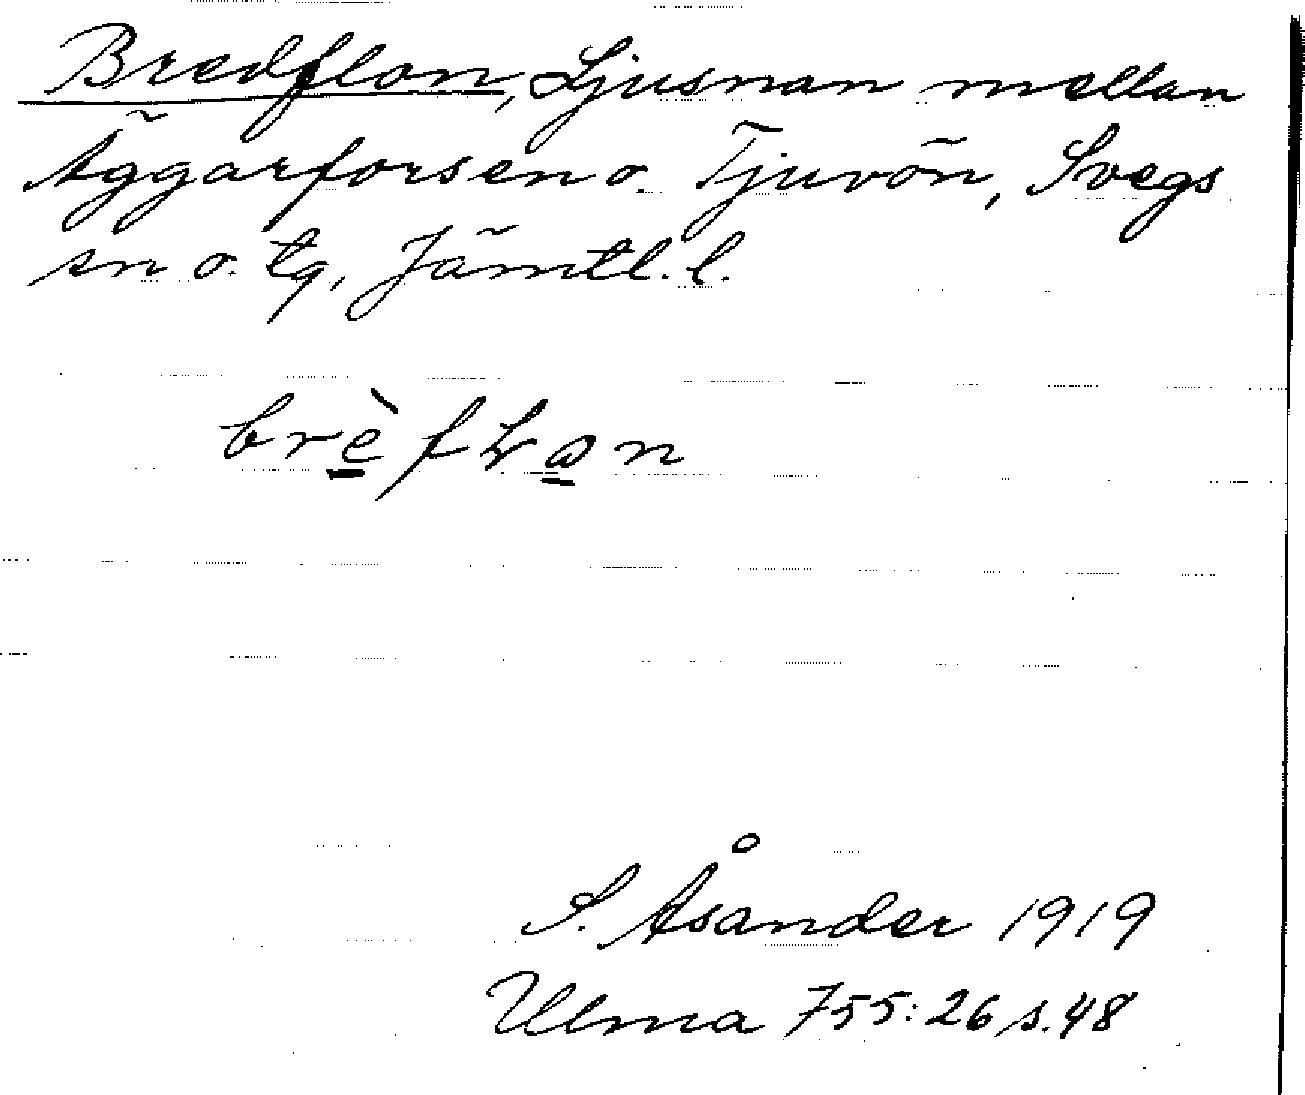 Bredflon, Ljusnan mellan
Äggarforsen o. Tjuvön, Svegs
sn o. tg, Jämtl. l.
brèfłan
S. Åsander 1919
Ulma 755:26 s. 48